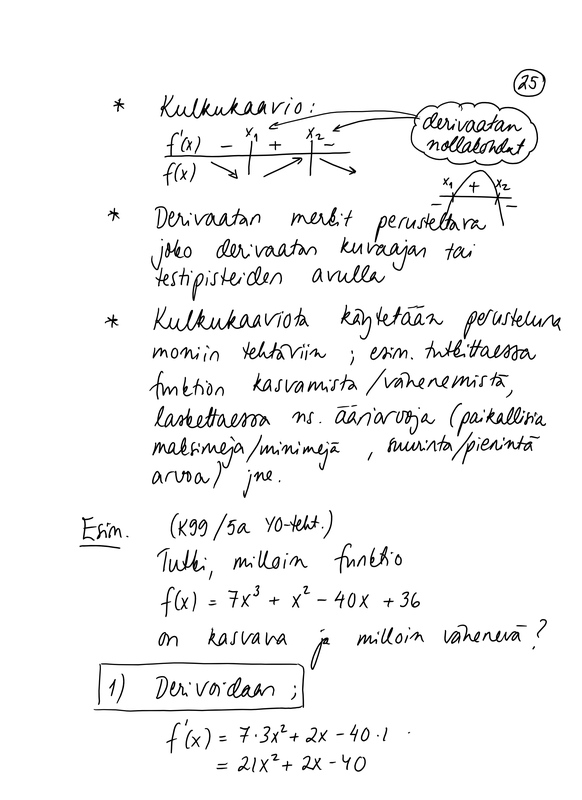 25
* Kulkukaavio:
x₁ x₂
derivaatan
nollakohdat
f'(x) - + -
f(x)
x₁ + x₂
- -
* Derivaatan merkit perusteltava
joko derivaatan kuvaajan tai
testipisteiden avulla
* Kulkukaaviota käytetään perusteluna
moniin tehtäviin ; esim. tutkittaessa
funktion kasvamista/vähenemistä,
laskettaessa ns. ääriarvoja (paikallisia
maksimeja/minimejä , suurinta/pienintä
arvoa) jne.
Esim. (K99/5a YO-teht.)
Tutki, milloin funktio
f(x) = 7x³ + x² - 40x + 36
on kasvava ja milloin vähenevä?
1) Derivoidaan ;
f'(x) = 7·3x² + 2x - 40·1
= 21x² + 2x - 40